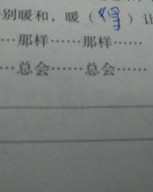 别暖和，暖（得）让
……那样……那样……
……总会……总会……